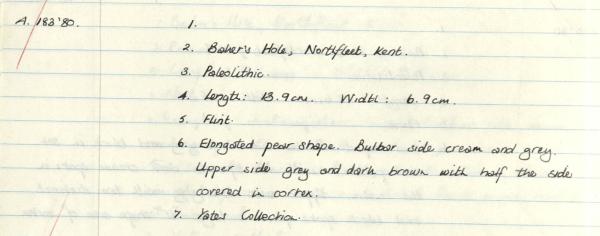 A. 183'80. 1.
2. Baker's Hole, Northfleet, Kent.
3. Paleolithic.
4. Length: 13.9cm. Width: 6.9cm.
5. Flint.
6. Elongated pear shape. Bulbar side cream and grey.
Upper side grey and dark brown with half the side
covered in cortex.
7. Yates Collection.